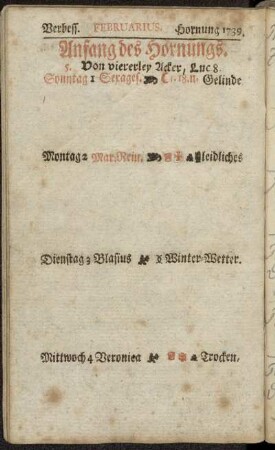 Verbess. FEBRUARIUS. Hornung 1739.
Anfang des Hornungs.
5. Von viererley Acker, Luc 8.
Sonntag 1 Sexages. Gelinde
Montag 2 Mar. Rein. leidliches
Dienstag 3 Blasius Winter-Wetter.
Mittwoch 4 Veronica Trocken,